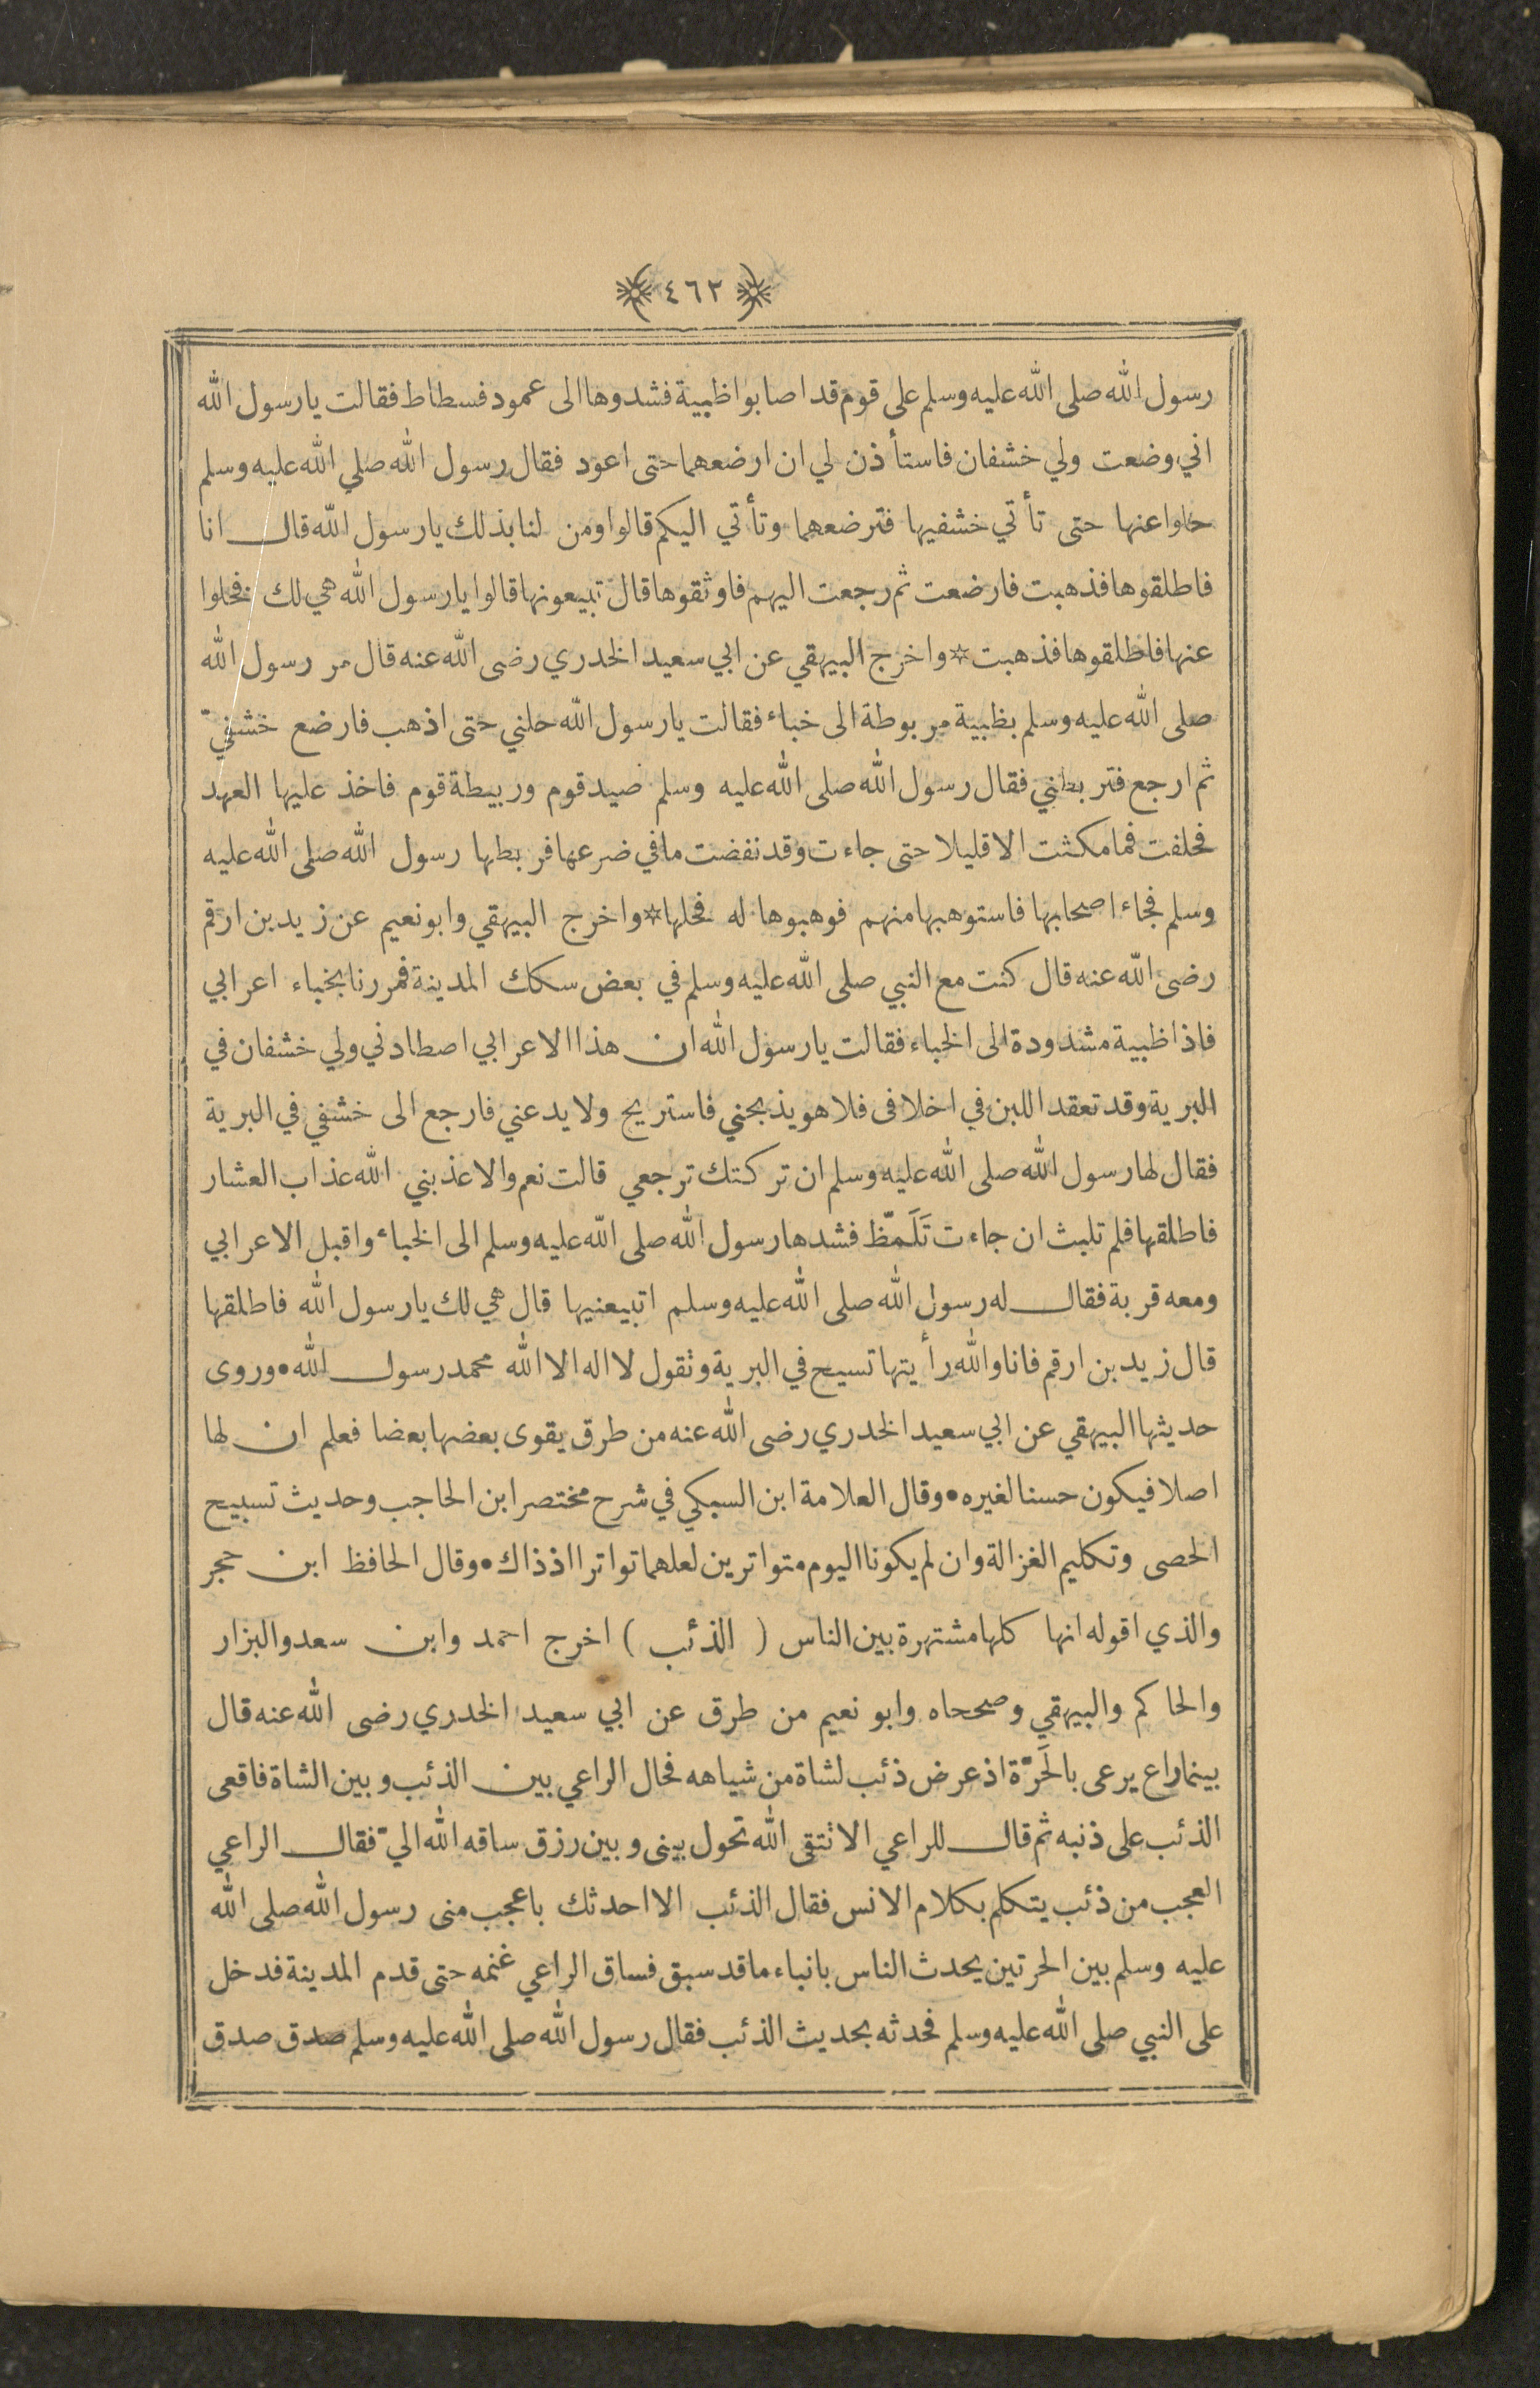 ٤٦٢
رسول الله صلى الله عليه وسلم على قوم قد اصابوا ظبية فشدوها الى عمود فسطاط فقالت يا رسول الله
اني وضعت ولي خشفان فاستأذن لي ان ارضعهما حتى اعود فقال رسول الله صلي الله عليه وسلم
خلوا عنها حتى تأتي خشفيها فترضعهما وتأتي اليكم قالوا ومن لنا بذلك يا رسول الله قال انا
فاطلقوها فذهبت فارضعت ثم رجعت اليهم فاوثقوها قال تبيعونها قالوا يا رسول الله هي لك فخلوا
عنها فاطلقوها فذهبت ☆ واخرج البيهقي عن ابي سعيد الخدري رضى الله عنه قال مر رسول الله
صلى الله عليه وسلم بظبية مربوطة الى خباء فقالت يا رسول الله حلني حتى اذهب فارضع خشفيّ
ثم ارجع فتربطني فقال رسول الله صلى الله عليه وسلم صيد قوم وربيطة قوم فاخذ عليها العهد
فحلفت فما مكثت الا قليلا حتى جاءت وقد نفضت ما في ضرعها فربطها رسول الله صلى الله عليه
وسلم فجاء اصحابها فاستوهبها منهم فوهبوها له فحلها ☆ واخرج البيهقي وابو نعيم عن زيد بن ارقم
رضى الله عنه قال كنت مع النبي صلى الله عليه وسلم في بعض سكك المدينة فمررنا بخباء اعرابي
فاذا ظبية مشدودة الى الخباء فقالت يا رسول الله ان هذا الاعرابي اصطادني ولي خشفان في
البرية وقد تعقد اللبن في اخلافى فلا هو يذبحني فاستريح ولا يدعني فارجع الى خشفي في البرية
فقال لها رسول الله صلى الله عليه وسلم ان تركتك ترجعي قالت نعم والا عذبني الله عذاب العشار
فاطلقها فلم تلبث ان جاءت تَلَمّظ فشدها رسول الله صلى الله عليه وسلم الى الخباء واقبل الاعرابي
ومعه قربة فقال له رسول الله صلى الله عليه وسلم اتبيعنيها قال هي لك يا رسول الله فاطلقها
قال زيد بن ارقم فانا والله رأيتها تسيح في البرية وتقول لا اله الا الله محمد رسول الله • وروى
حديثها البيهقي عن ابي سعيد الخدري رضى الله عنه من طرق يقوى بعضها بعضا فعلم ان لها
اصلا فيكون حسنا لغيره • وقال العلامة ابن السبكي في شرح مختصر ابن الحاجب وحديث تسبيح
الحصى وتكليم الغزالة وان لم يكونا اليوم متواترين لعلهما تواترا اذ ذاك • وقال الحافظ ابن حجر
والذي اقوله انها كلها مشتهرة بين الناس ( الذئب ) اخرج احمد وابن سعد والبزار
والحاكم والبيهقي وصححاه وابو نعيم من طرق عن ابي سعيد الخدري رضى الله عنه قال
بينما راع يرعى بالحَرّة اذ عرض ذئب لشاة من شياهه فحال الراعي بين الذئب وبين الشاة فاقعى
الذئب على ذنبه ثم قال للراعي الا تتقى الله تحول بينى وبين رزق ساقه الله اليّ فقال الراعي
العجب من ذئب يتكلم بكلام الانس فقال الذئب الا احدثك باعجب منى رسول الله صلى الله
عليه وسلم بين الحرتين يحدث الناس بانباء ما قد سبق فساق الراعي غنمه حتى قدم المدينة فدخل
على النبي صلى الله عليه وسلم فحدثه بحديث الذئب فقال رسول الله صلى الله عليه وسلم صدق صدق